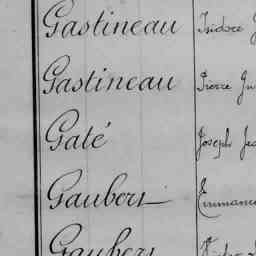 Gastineau Isidore
Gastineau Pierre
Gaté Joseph
Gaubert
Gaubert